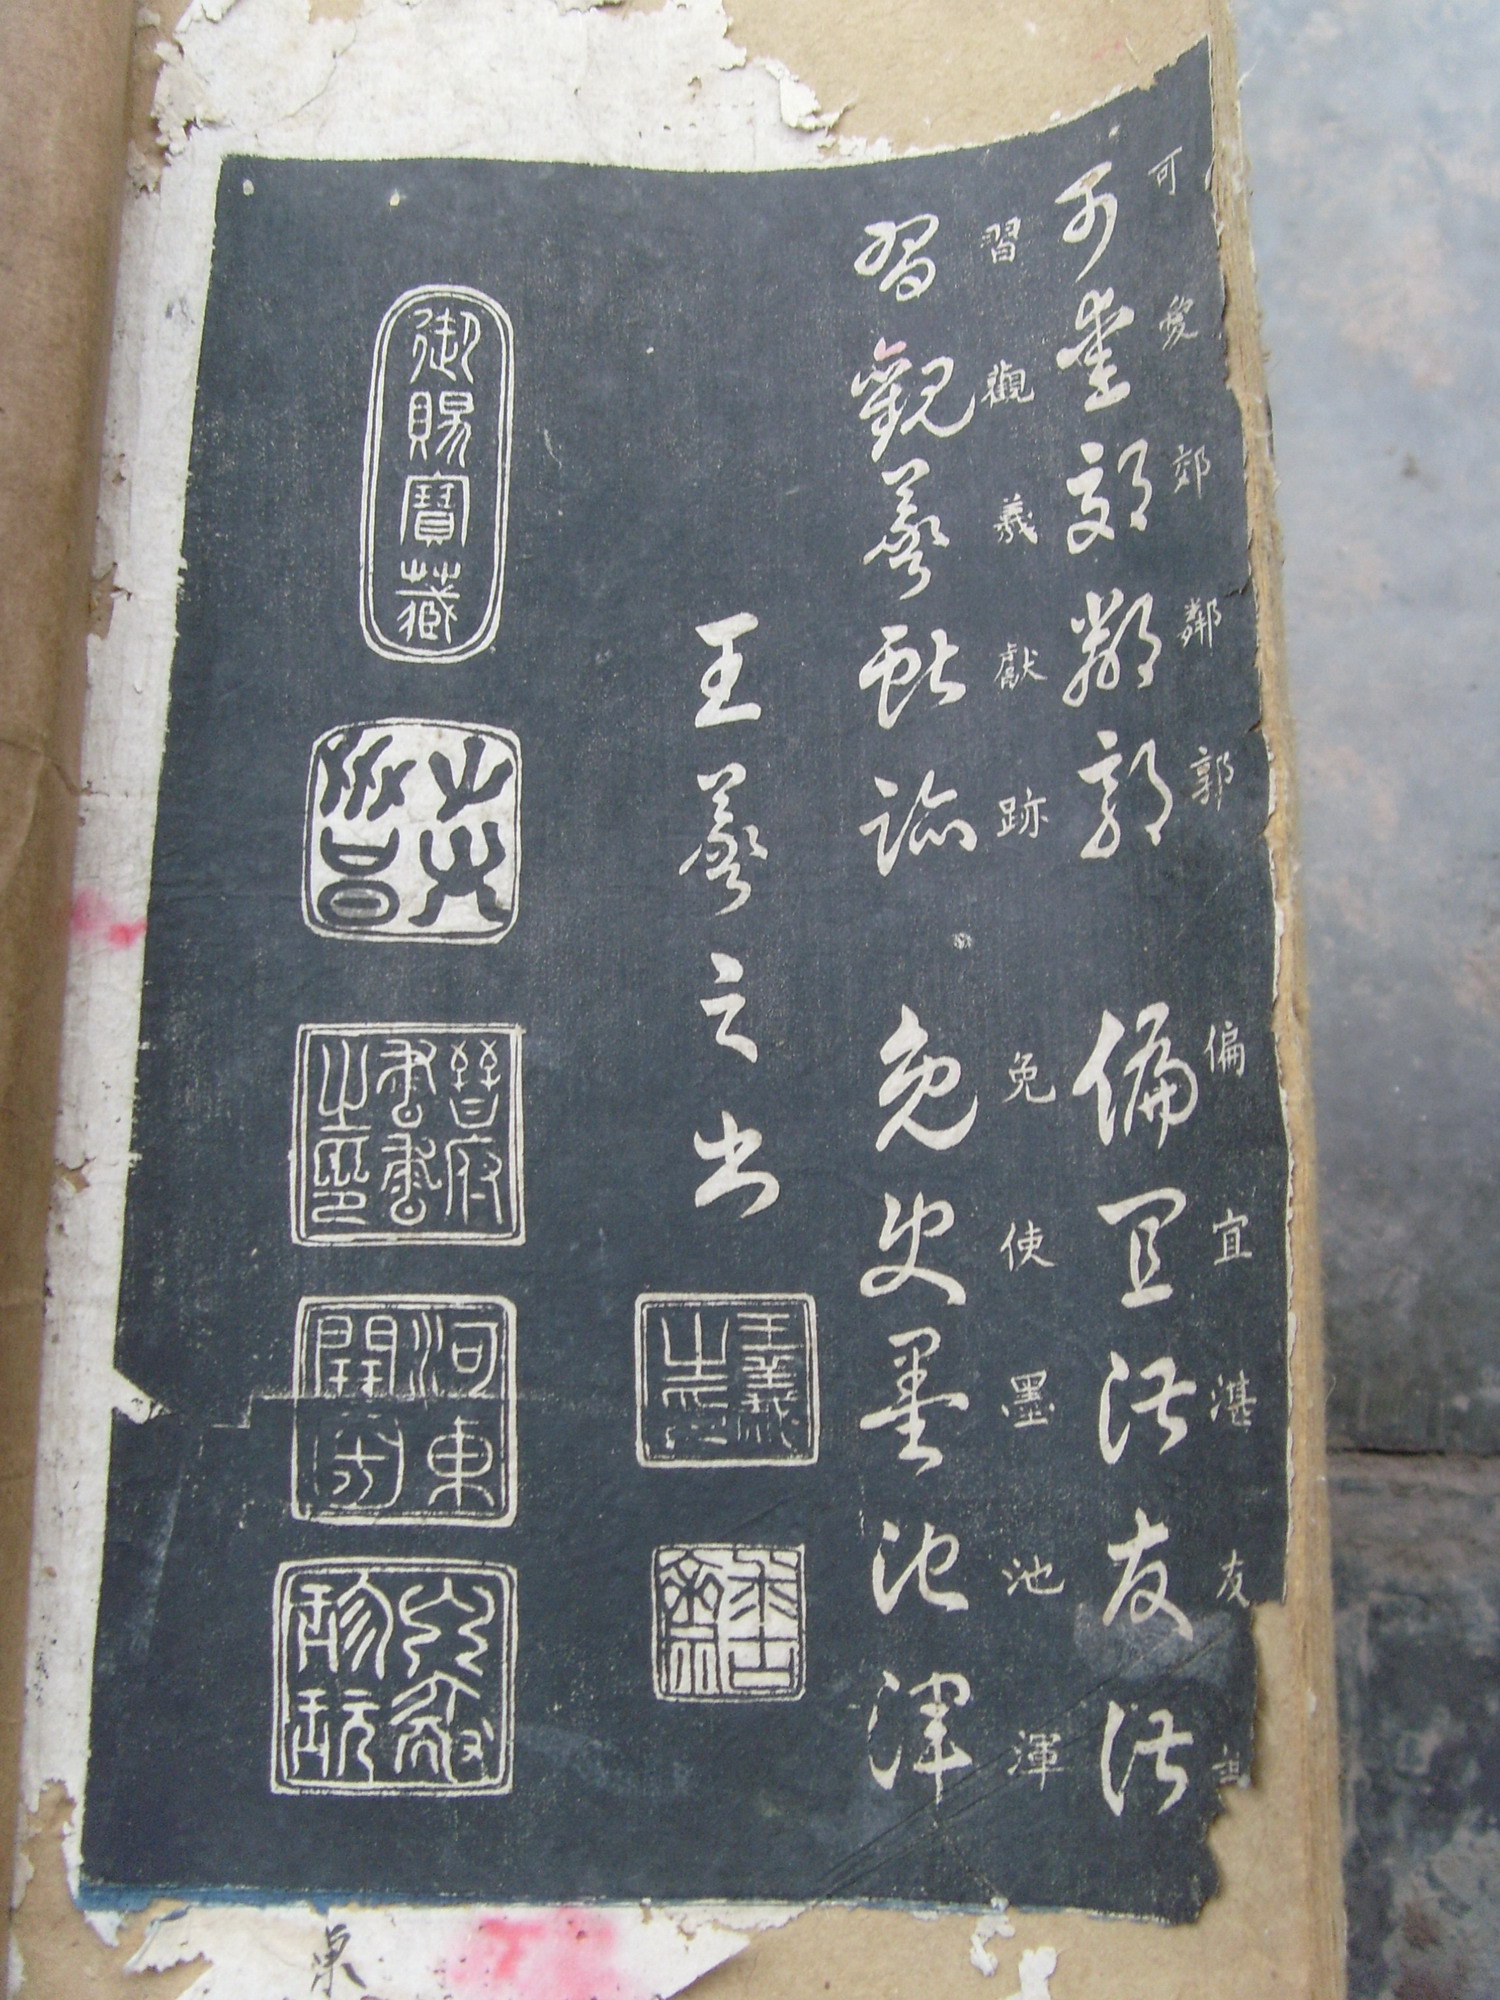 可愛郊鄰郭偏宜湛友
可愛郊鄰郭偏宜湛友湛
習觀羲獻跡免使墨池渾
習觀羲獻跡免使墨池渾
王羲之書
王羲之印
御賜寶藏
晉府書畫之印
河東